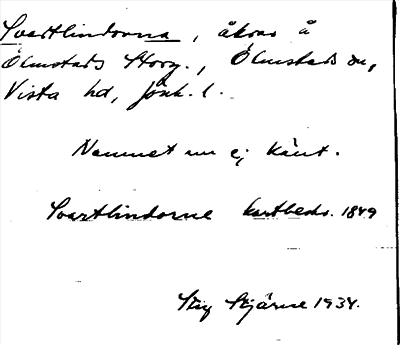 Svartlindorna, åkrar å
Ölmstads Storg., Ölmstads sn,
Vista hd, Jönk. l.
Namnet nu ej känt.
Svartlindorne kartbeskr. 1849
Stig Stjärne 1934.